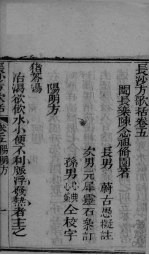 長沙方歌括卷五
閩長樂陳念祖修園著
長男 蔚古愚擬註
次男元犀靈石叅訂
孫男 心典 心蘭 仝校字
陽明方
猪苓湯
治渴欲飲水小便不利脈浮發熱者主之